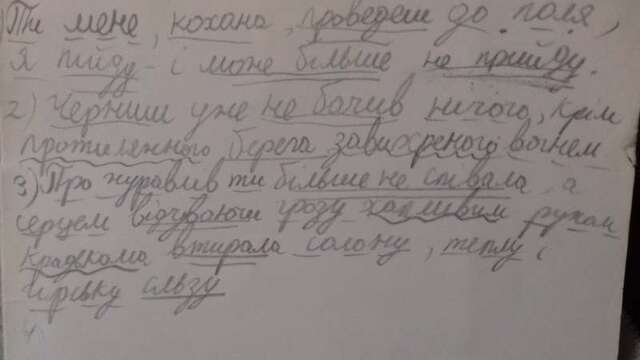 Ти мене, кохана, проведеш до поля,
Я піду - і може більше не прийду.
2) Черниш уже не бачив нічого, крім
протилежного берега завихреного вогнем
3) Про журавлів ти більше не співала, а
серцем відчуваючи грозу хапливим рухом
крадькома втирала солону, теплу і
гірську сльзу
4